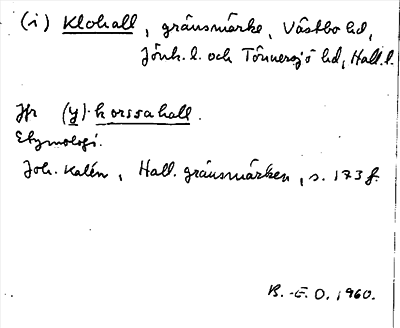 (i) Klohall, gränsmärke, Västbo hd,
Jönk. l. och Tönnersjö hd, Hall. l.
Jfr (y) korssahall.
Etymologi.
Joh. Kalén, Hall. gränsmärken, s. 173 f.
B.-E. O. 1960.